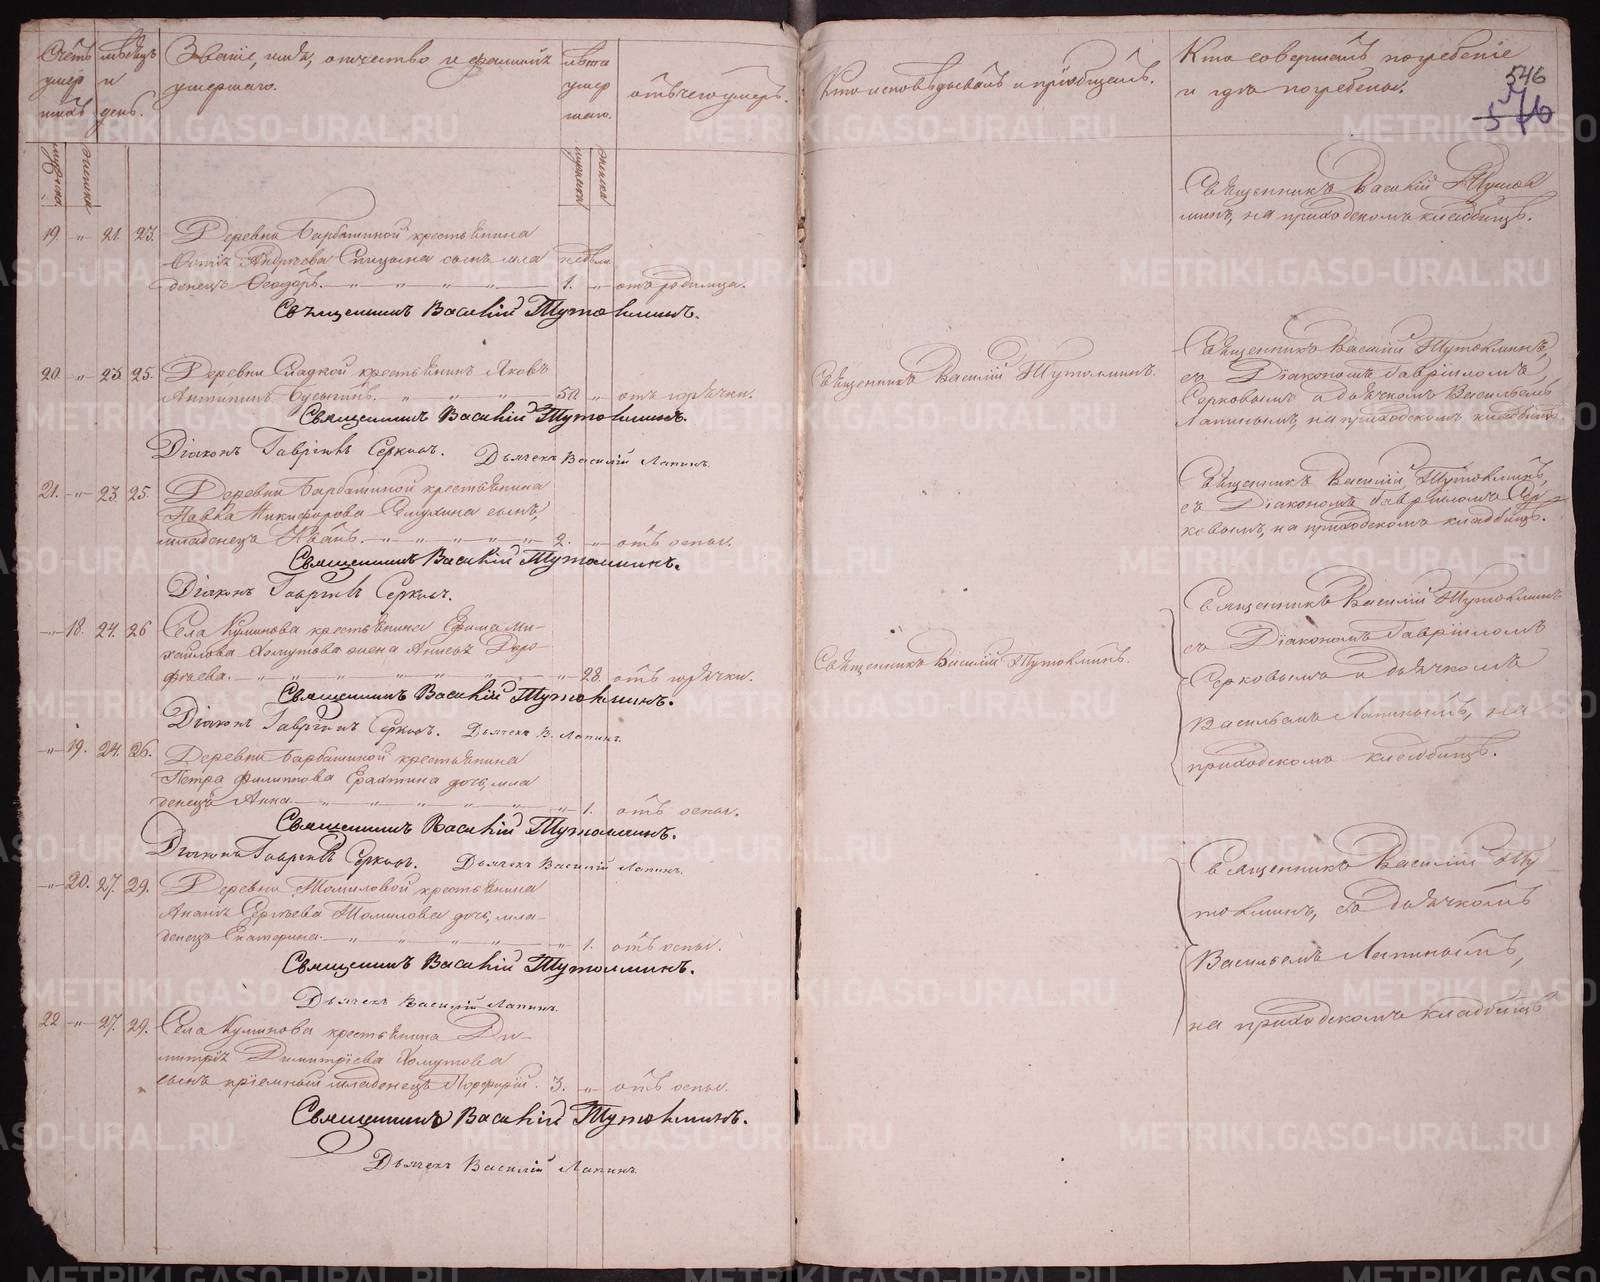 Счетъ умер шихъ
мѣсяцъ и день.
Званіе, имя, отчество и фамилія
умершаго.
лѣта умер шаго.
отъ чего умеръ.
Кто исповѣдывалъ и пріобщалъ.
Кто совершалъ погребеніе
и гдѣ погребены.
546
546
мужеска
женска
мужеска
женска
19. -"- 21. 23. Деревни Барбашиной крестьянина
Андрѣева Спицына сынъ мла недѣли
денецъ Ѳеодоръ. 1. -"- отъ родимца.
Священникъ Василій Тутолминъ.
Священникъ Василій Тутол
минъ, на приходскомъ кладбищѣ.
20 -"- 23 25. Деревни Сладкой крестьянинъ Яковъ
Антипинъ Бусыгинъ. 50 " отъ горячки.
Священникъ Василій Тутолминъ.
Діаконъ Гавріилъ Серковъ. Дьячекъ Василій Лапинъ.
Священникъ Василій Тутолминъ.
Священникъ Василій Тутолминъ,
съ Діакономъ Гавріиломъ
Серковымъ и дьячкомъ Васильемъ
Лапинымъ, на приходскомъ кладбищѣ
21. -"- 23. 25. Деревни Барбашиной крестьянина
Павла Никифорова сынъ,
младенецъ Иванъ. 2. -"- отъ оспы.
Священникъ Василій Тутолминъ.
Діаконъ Гавріилъ Серковъ.
Священникъ Василій Тутолминъ,
съ Діакономъ Гавріиломъ Сер
ковымъ, на приходскомъ кладбищѣ.
-"- 18. 24. 26 Села Куминова крестьянина Ефима Ми-
хайлова Хомутова жена Анисья Доро
фѣева. -"- 28. отъ горячки.
Священникъ Василій Тутолминъ.
Діаконъ Гавріилъ Серковъ. Дьячекъ В. Лапинъ.
Священникъ Василій Тутолминъ.
Священникъ Василій Тутолминъ
съ Діакономъ Гавріиломъ
Серковымъ и дьячкомъ
Васильемъ Лапинымъ, на
приходскомъ кладбищѣ.
-"- 19. 24. 26. Деревни Барбашиной крестьянина
Петра Филиппова дочь, мла
денецъ Анна. -"- 1. отъ оспы.
Священникъ Василій Тутолминъ.
Діаконъ Гавріилъ Серковъ. Дьячекъ Василій Лапинъ.
-"- 20. 27. 29. Деревни Томиловой крестьянина
Сергѣева Томилова дочь, мла-
денецъ Екатерина. -"- 1. отъ оспы.
Священникъ Василій Тутолминъ.
Дьячекъ Василій Лапинъ.
Священникъ Василій Ту
толминъ, съ дьячкомъ
Васильемъ Лапинымъ,
на приходскомъ кладбищѣ
22 -"- 27. 29. Села Куминова крестьянина Ди-
митрія Димитріева Хомутова
сынъ пріемный младенецъ Порфирій. 3. -"- отъ оспы.
Священникъ Василій Тутолминъ.
Дьячекъ Василій Лапинъ.
METRIKI.GASO-URAL.RU